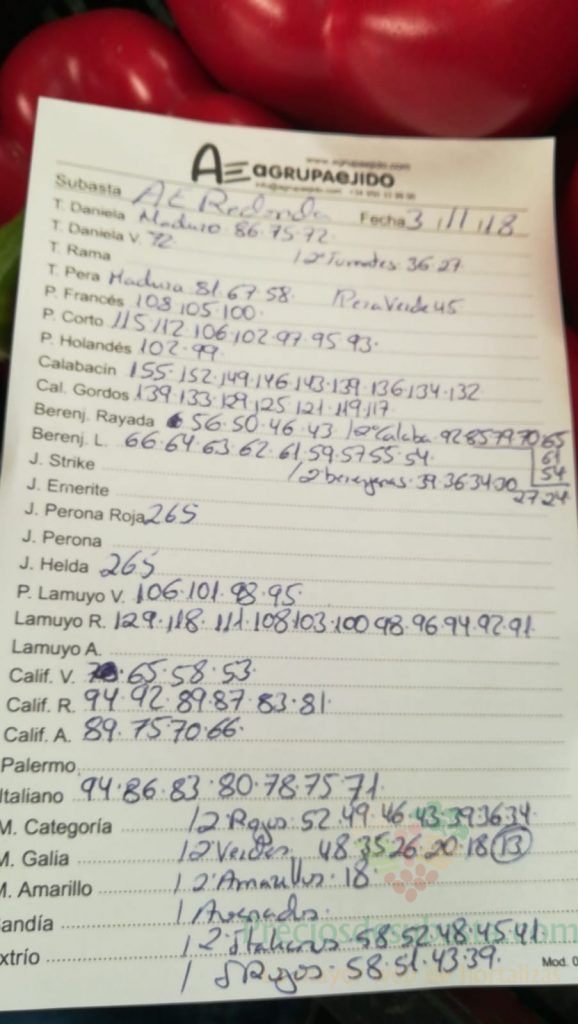 www.agrupaejido.com
AE AGRUPAEJIDO
Subasta AE Redonda Fecha 3/11/18
T. Daniela Maduro 86.75.72
T. Daniela V. 72 / 2ª Tomates 36.27
T. Rama
T. Pera Madura 81.67.58 Pera Verde 45
P. Francés 108 105 100
P. Corto 115 112 106 102 97 95 93
P. Holandés 102.99
Calabacín 155.152.149.146.143.139.136.134.132
Cal. Gordos 139.133.129.125.121.119.117
Berenj. Rayada 56.50.46.43 / 2ª Calaba. 92 85 79 70 65
61
Berenj. L. 66.64.63.62.61.59.57.55.54
54
J. Strike / 2 berenjenas 39.36.34.30
27 24
J. Emerite
J. Perona Roja 265
J. Perona
J. Helda 265
P. Lamuyo V. 106.101.98.95
Lamuyo R. 129.118.111.108 103.100 98.96 94.92 91
Lamuyo A.
Calif. V. 65.58.53
Calif. R. 94.92.89.87.83.81
Calif. A. 89.75 70.66
Palermo
Italiano 94.86.83.80.78.75.71
M. Categoría / 2 Rojos 52.49.46.43.39 36 34
M. Galia / 2 Verdes 48 35 26.20.18 13
M. Amarillo / 2ª Amarillos 18
andía /
xtrío / 2ª Italianos 58.52.48.45.41
/ Rojos 58.51.43.39
Mod. 0
Preciosdesubasta.com